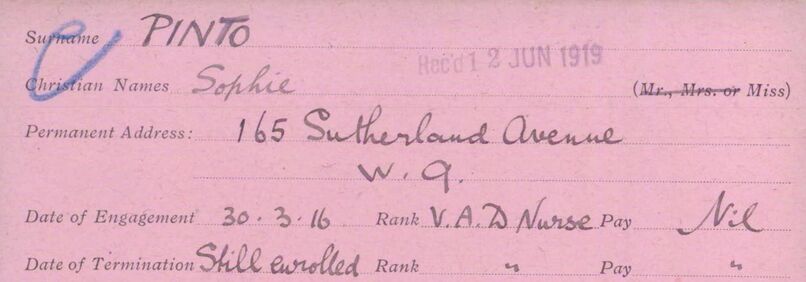 Surname PINTO
Rec'd 12 JUN 1919
Christian Names Sophie (Mr., Mrs. or Miss)
Permanent Address: 165 Sutherland Avenue
W. 9.
Date of Engagement 30.3.16 Rank V.A.D Nurse Pay Nil
Date of Termination Still enrolled Rank " Pay "